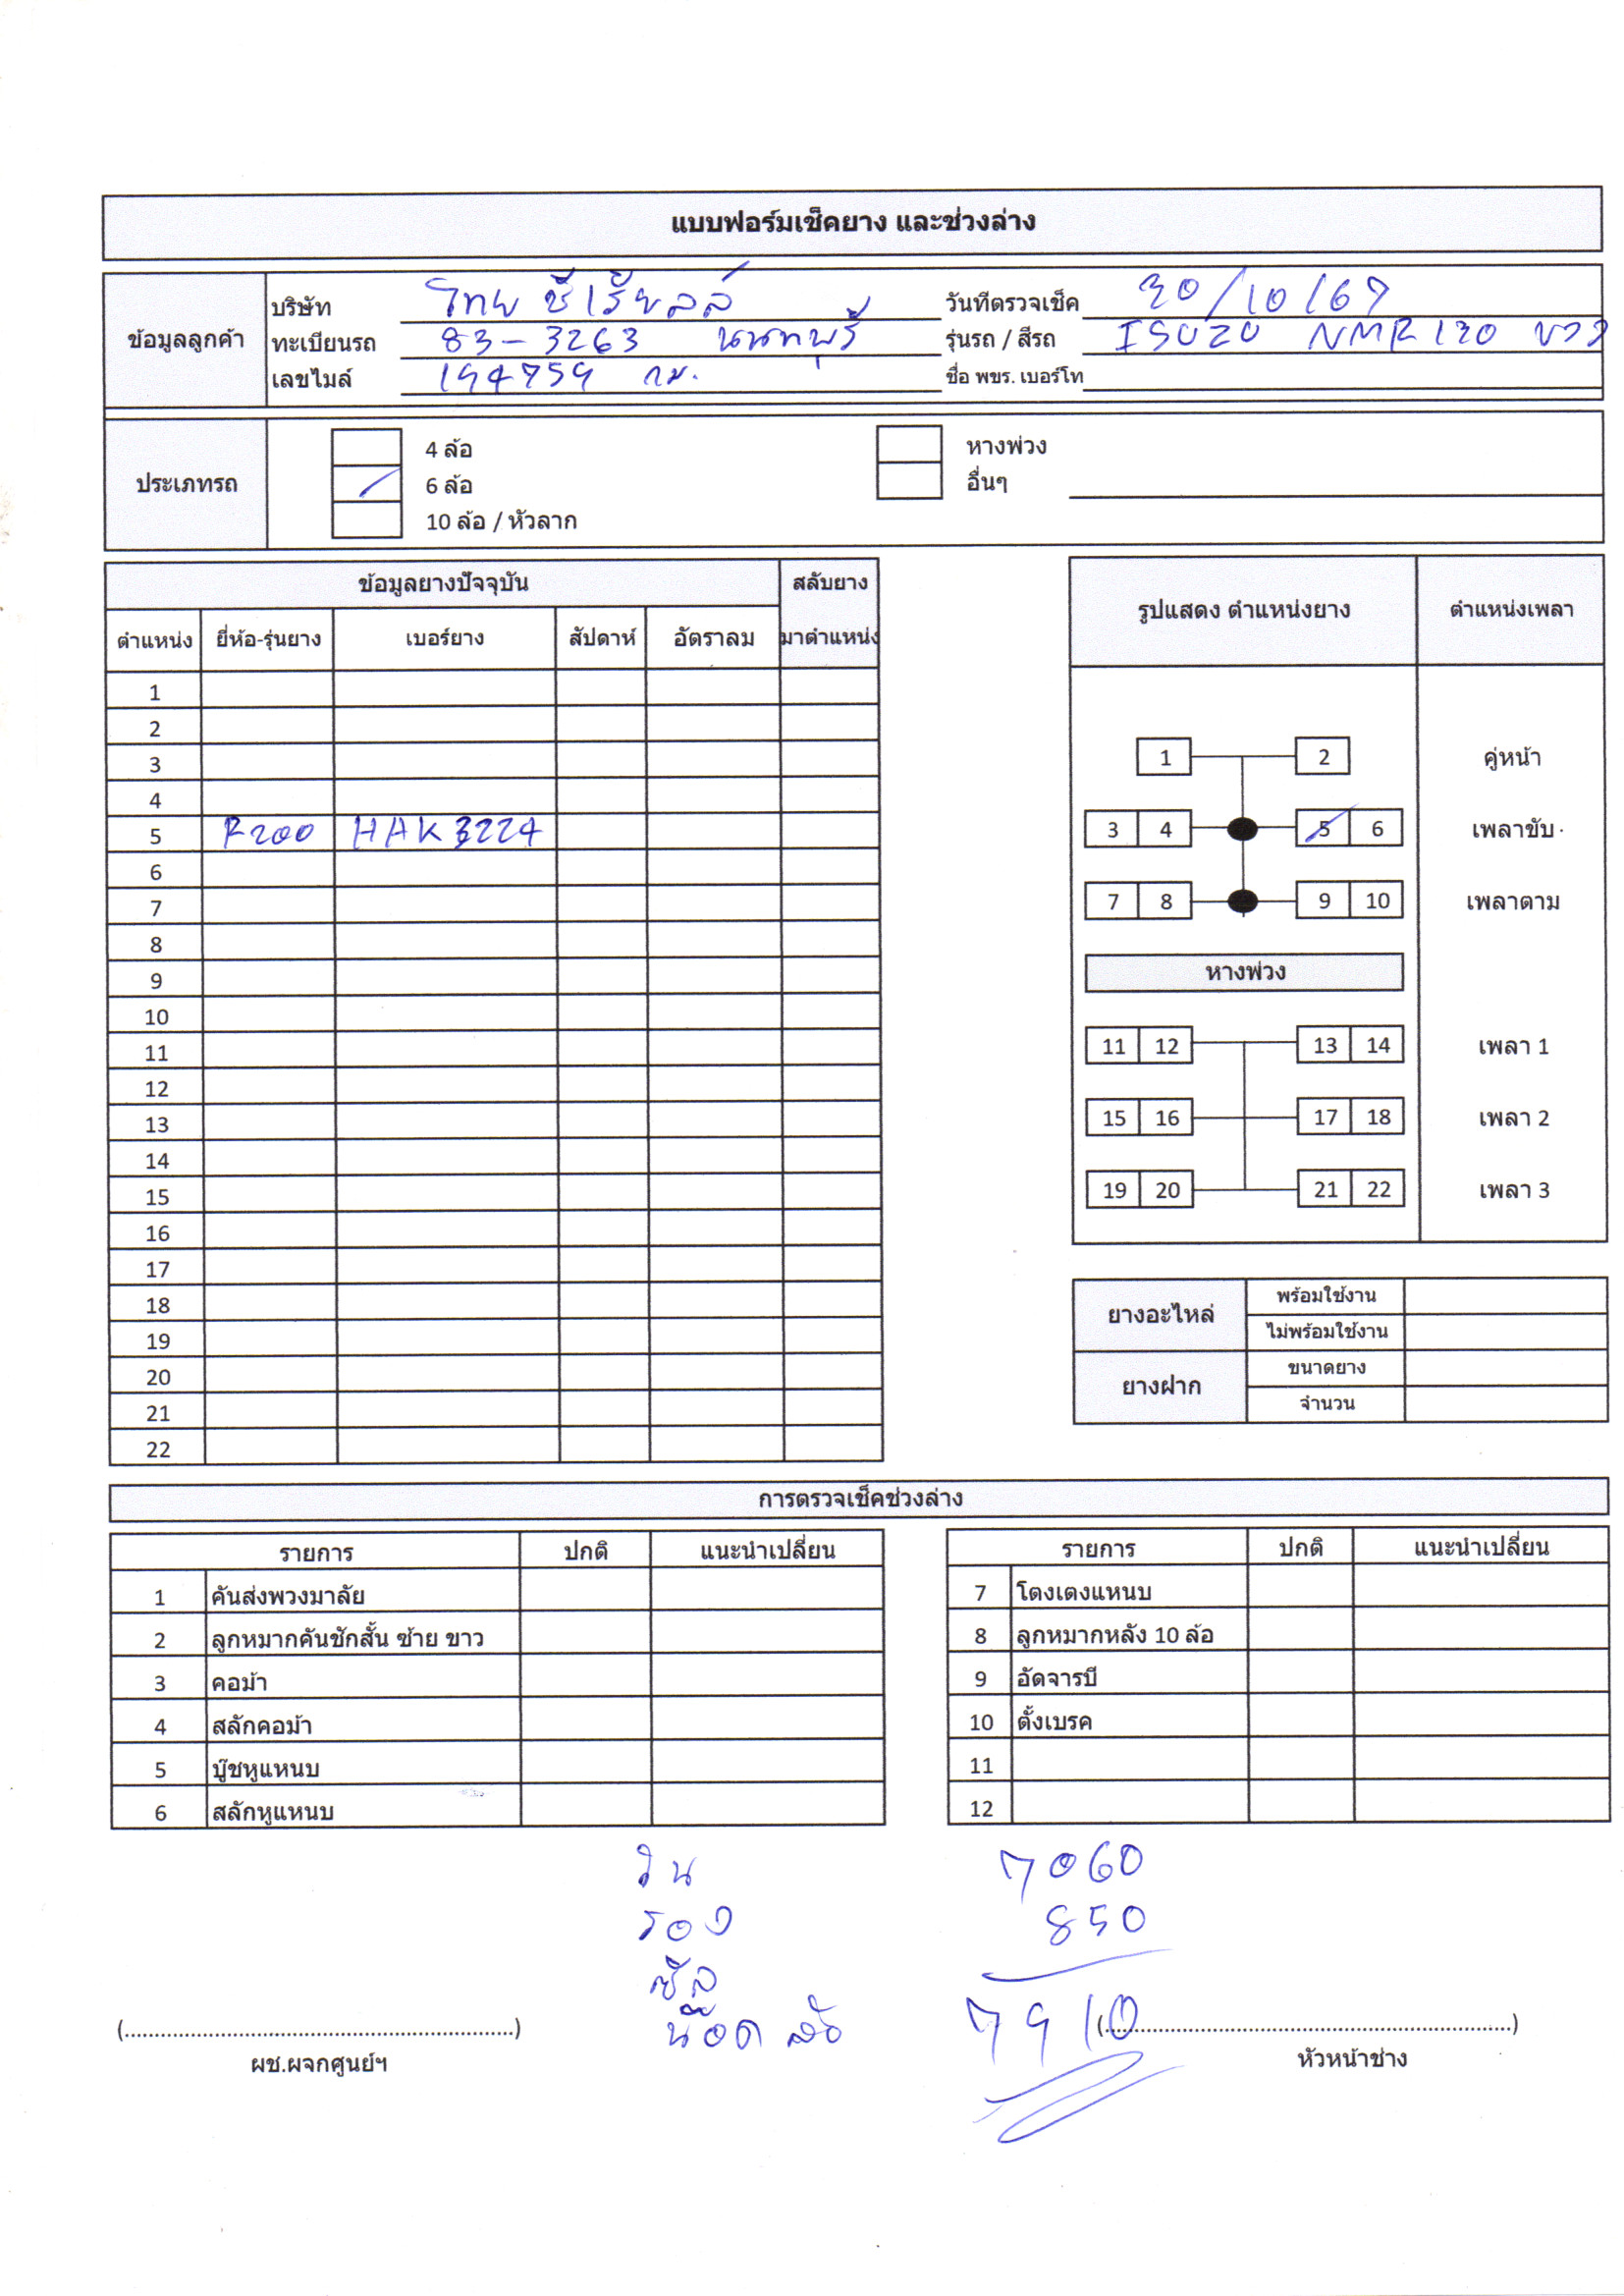 แบบฟอร์มเช็คยาง และช่วงล่าง
ข้อมูลลูกค้า
บริษัท ไทย ซีเรียลล์ วันทีตรวจเช็ค 30/10/67
ทะเบียนรถ 83-3263 นนทบุรี รุ่นรถ / สีรถ ISUZU NMR 130 ขาว
เลขไมล์ 194759 กม. ชื่อ พขร. เบอร์โท
ประเภทรถ
4 ล้อ หางพ่วง
6 ล้อ อื่นๆ
10 ล้อ / หัวลาก
ข้อมูลยางปัจจุบัน สลับยาง
ตำแหน่ง ยี่ห้อ-รุ่นยาง เบอร์ยาง สัปดาห์ อัตราลม มาตำแหน่ง
1
2
3
4
5 R200 HAK3224
6
7
8
9
10
11
12
13
14
15
16
17
18
19
20
21
22
รูปแสดง ตำแหน่งยาง ตำแหน่งเพลา
1 2 คู่หน้า
3 4 5 6 เพลาขับ
7 8 9 10 เพลาตาม
หางพ่วง
11 12 13 14 เพลา 1
15 16 17 18 เพลา 2
19 20 21 22 เพลา 3
ยางอะไหล่ พร้อมใช้งาน
ไม่พร้อมใช้งาน
ยางฝาก ขนาดยาง
จำนวน
การตรวจเช็คช่วงล่าง
รายการ ปกติ แนะนำเปลี่ยน
1 คันส่งพวงมาลัย
2 ลูกหมากคันชักสั้น ซ้าย ขาว
3 คอม้า
4 สลักคอม้า
5 บู๊ชหูแหนบ
6 สลักหูแหนบ
รายการ ปกติ แนะนำเปลี่ยน
7 โตงเตงแหนบ
8 ลูกหมากหลัง 10 ล้อ
9 อัดจารบี
10 ตั้งเบรค
11
12
ใน 7060
รอง 850
ซีล
น๊อต ล้อ 7910
(........................................) (........................................)
ผช.ผจกศูนย์ฯ หัวหน้าช่าง